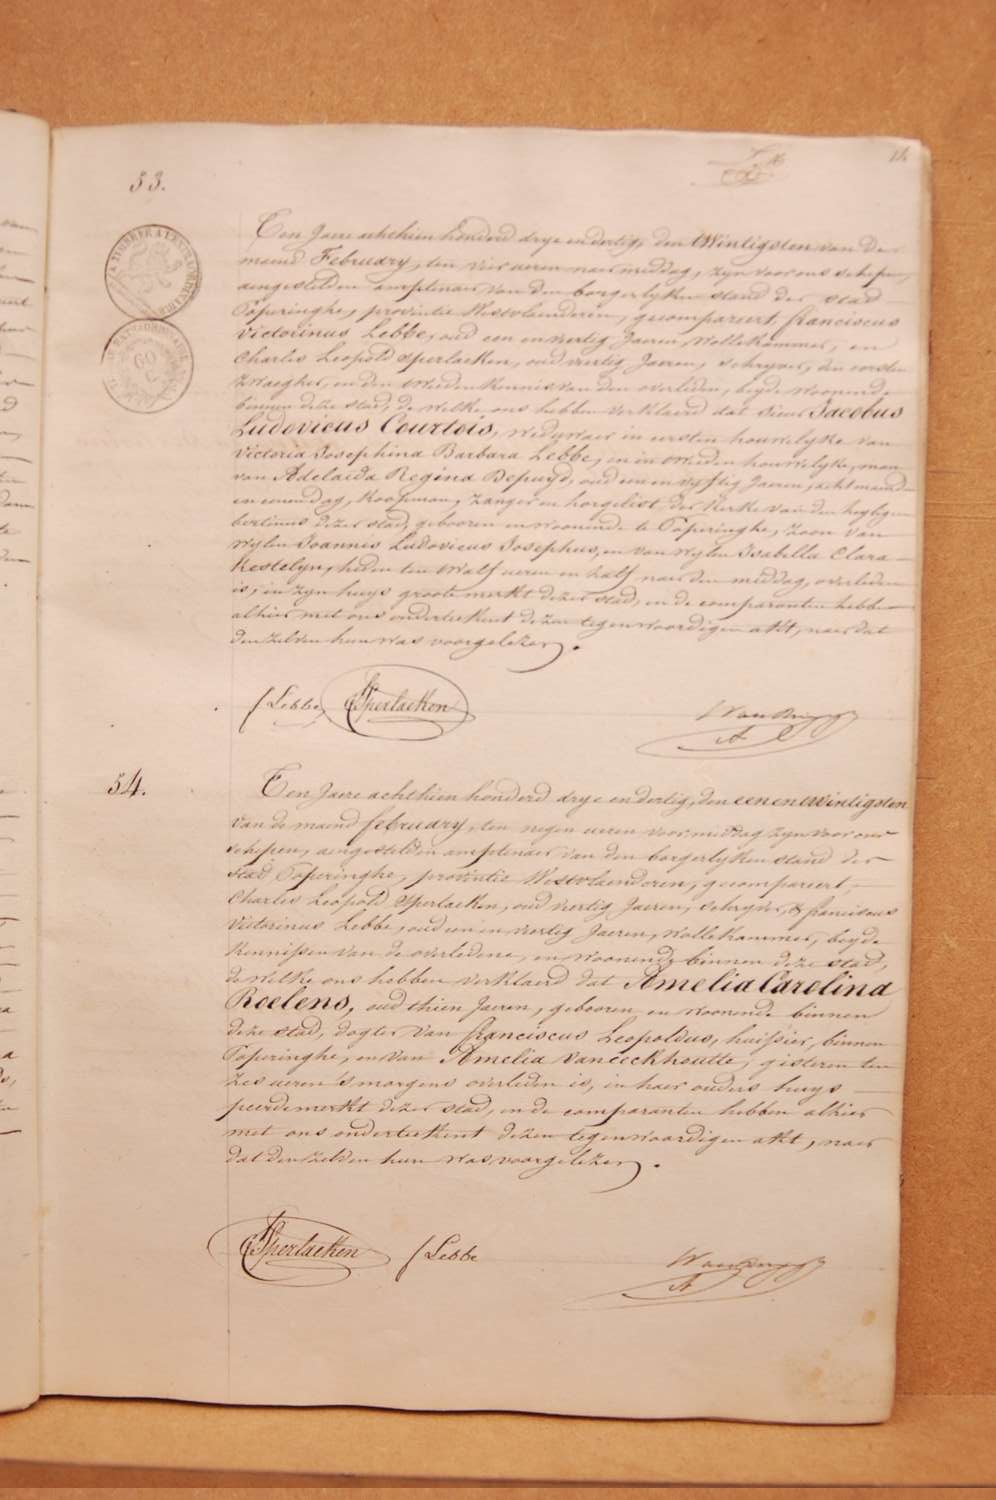 14
53.
Ten Jaere achthien honderd drye en dertig, den twintigsten van de
maend February, ten vier ueren naer middag, zyn voor ons schepen,
aengestelden amptenaer van den borgerlyken stand der stad
Poperinghe, provintie Westvlaenderen, gecompareert, franciscus
victorinus Lebbe, oud een en veertig Jaeren, wollekammer, en
Charles Leopold Sperlaeken, oud veertig Jaeren, schryver, den eersten
zwaegher, en den tweeden kennis van den overleden, beyde woonende
binnen deze stad, de welke ons hebben verklaerd dat sieur Jacobus
Ludovicus Courtois, weduwaer in eersten houwelyke van
Victoria Josephina Barbara Lebbe, en in tweeden houwelyke, man
van Adelaida Regina Depuyd, oud een en vyftig Jaeren, acht maenden
en eenen dag, koopman, zanger en horgelist der kerke van den heyligen
bertinus dezer stad, gebooren en woonende te Poperinghe, zoon van
wylen Joannis Ludovicus Josephus, en van wylen Isabella Clara
Kestelyn, heden ten twalf ueren en half naer den middag, overleden
is, in zyn huys groote merkt dezer stad, en de comparanten hebben
alhier met ons onderteekent dezen tegenwoordigen akt, naer dat
den zelven hun was voorgelezen.
f Lebbe Sperlaeken
54.
Ten Jaere achthien honderd drye en dertig, den een en twintigsten
van de maend february, ten negen ueren voor middag zyn voor ons
schepen, aengestelden amptenaer van den borgerlyken stand der
stad Poperinghe, provintie Westvlaenderen, gecompareert,
Charles Leopold Sperlaeken, oud veertig Jaeren, schryver, & franciscus
Victorinus Lebbe, oud een en veertig Jaeren, wollekammer, beyde
kennissen van de overledene, en woonende binnen deze stad,
de welke ons hebben verklaerd dat Amelia Carolina
Roelens, oud thien Jaeren, gebooren en woonende binnen
deze stad, dogter van franciscus Leopoldus, huissier, binnen
Poperinghe, en van Amelia vaneeckhoutte, gisteren ten
zes ueren 's morgens overleden is, in haer ouders huys
peerdemerkt dezer stad, en de comparanten hebben alhier
met ons onderteekent dezen tegenwoordigen akt, naer
dat den zelven hun was voorgelezen.
Sperlaeken f Lebbe